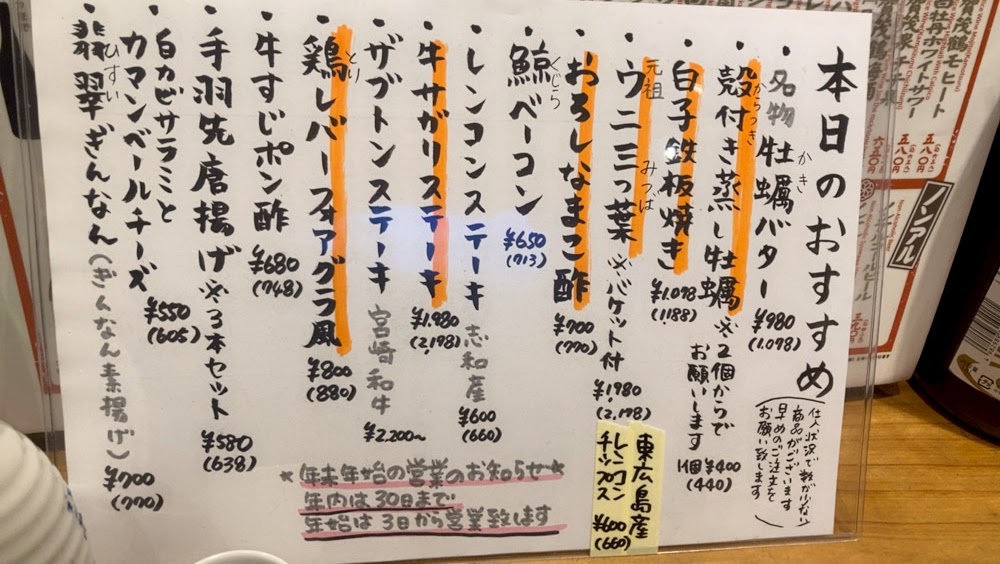 本日のおすすめ
仕入状況で数が少ない
商品がございます
早めのご注文を
お願い致します
・名物牡蠣バター ¥980
かき
(1.078)
・殻付き蒸し牡蠣 ※2個からで
からつき
お願いします
1個¥400
(440)
・白子鉄板焼き ¥1.078
(1188)
・元祖
ウニ三つ葉 ※バケット付 ¥1980
みつば
(2.178)
東広島産
レンコン
チップス
¥600
(660)
・おろしなまこ酢 ¥700
(770)
・鯨ベーコン ¥650
くじら
(713)
・レンコンステーキ 志和産 ¥600
(660)
・牛サガリステーキ ¥1.980
(2.178)
・ザブトンステーキ 宮崎和牛 ¥2.200〜
・鶏レバーフォアグラ風 ¥800
とり
(880)
・牛すじポン酢 ¥680
(748)
・手羽先唐揚げ ※3本セット ¥580
(638)
・白カビサラミと
カマンベールチーズ ¥550
(605)
・翡翠ぎんなん(ぎんなん素揚げ) ¥700
ひすい
(770)
*年末年始の営業のお知らせ*
年内は30日まで
年始は3日から営業致します
ノンアル